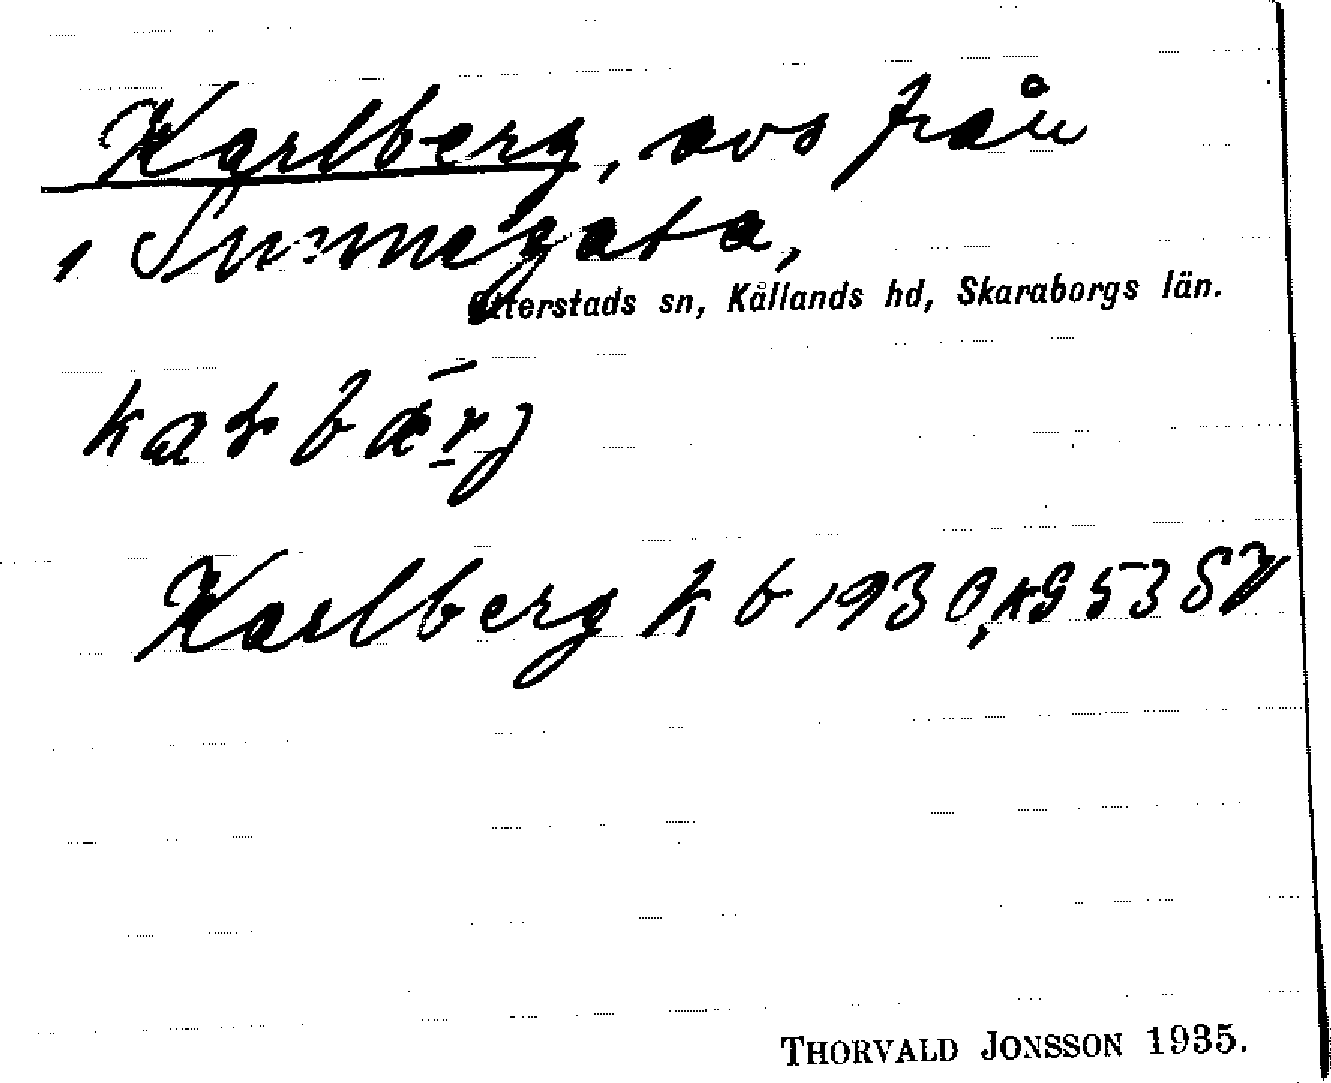 Karlberg, avs från
1 Sunnegata,
Otterstads sn, Kållands hd, Skaraborgs län.
Karlberg kb 1930, 53 SV
THORVALD JONSSON 1935.